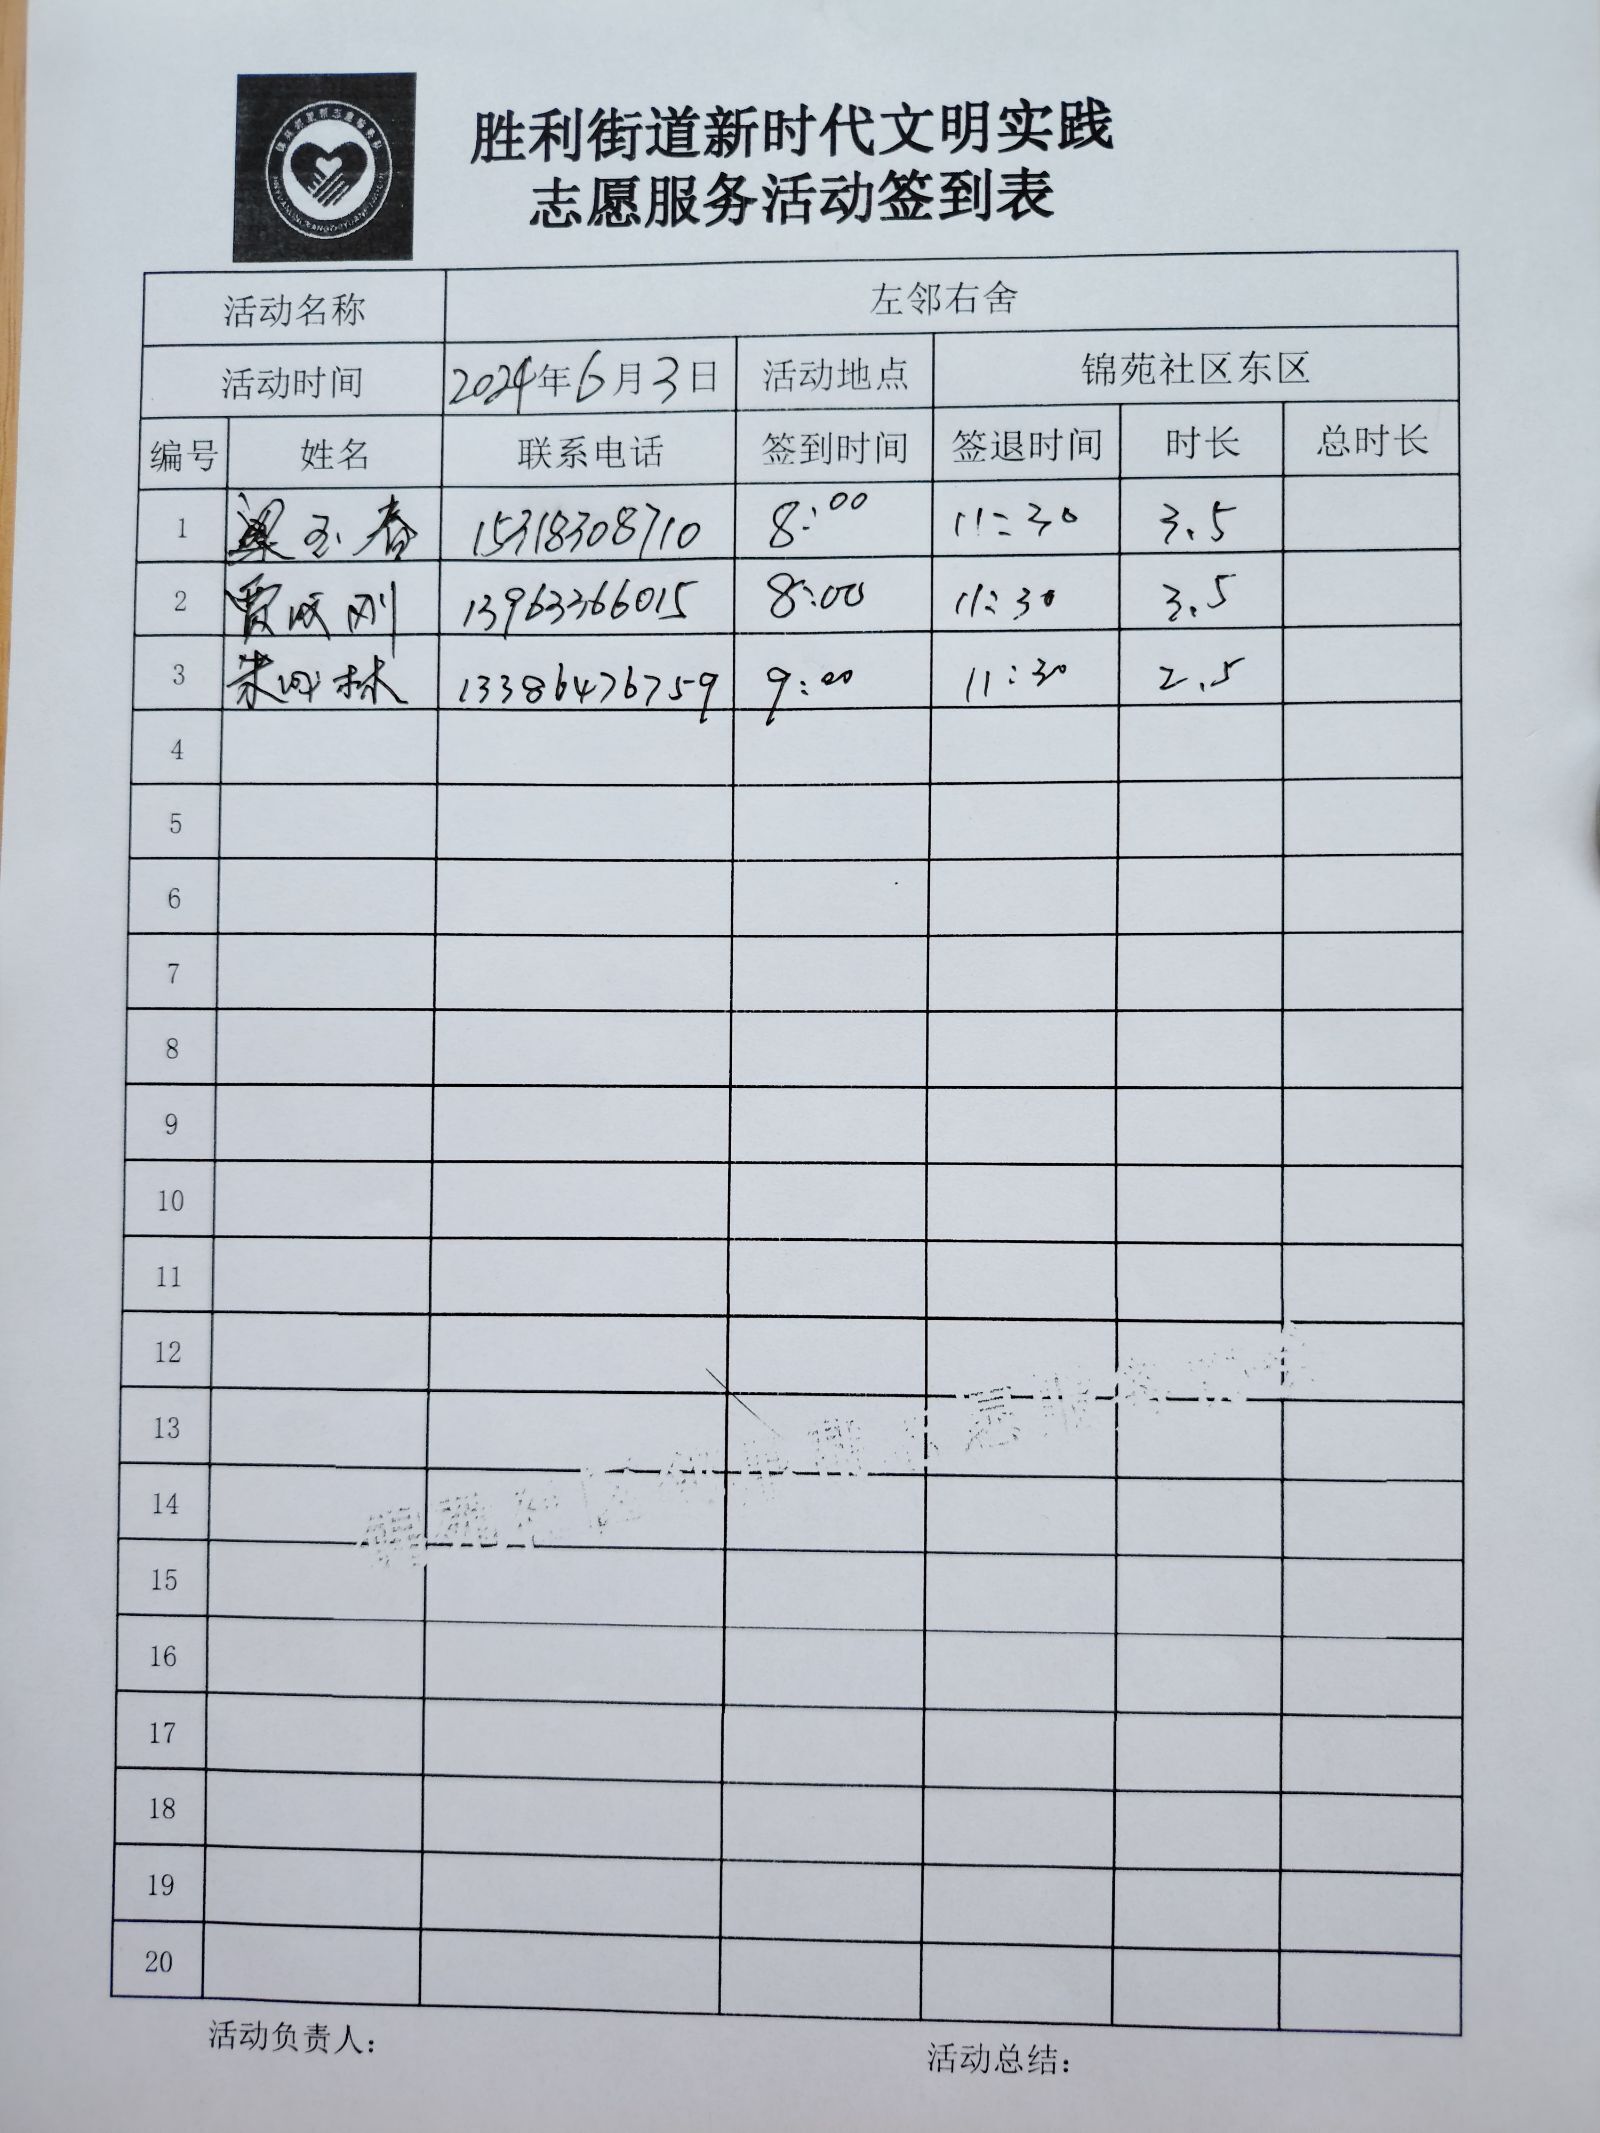 胜利街道新时代文明实践
志愿服务活动签到表
活动名称 左邻右舍
活动时间 2024年6月3日 活动地点 锦苑社区东区
编号 姓名 联系电话 签到时间 签退时间 时长 总时长
1 梁玉春 15318308710 8:00 11:30 3.5
2 贾成刚 13963366015 8:00 11:30 3.5
3 朱成林 13386476759 9:00 11:30 2.5
4
5
6
7
8
9
10
11
12
13
14
15
16
17
18
19
20
活动负责人： 活动总结：